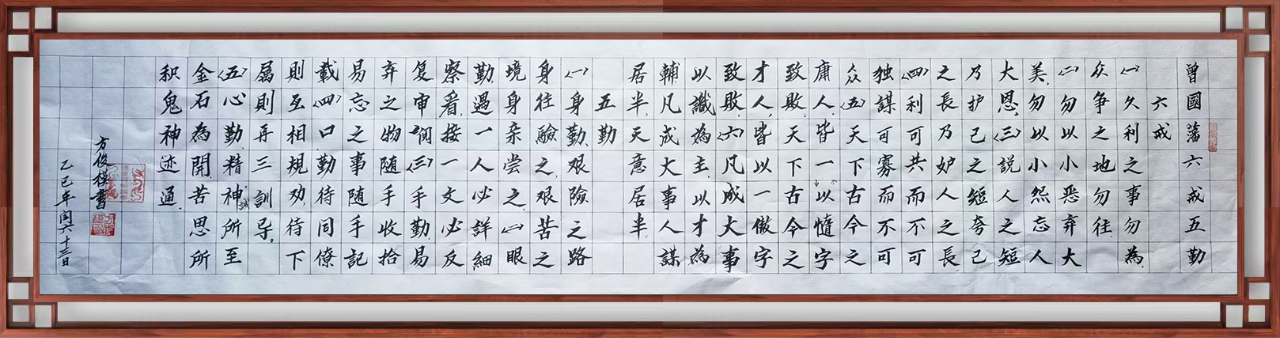 曾國藩六戒五勤
六戒
㈠久利之事勿為
众争之地勿往
㈡勿以小恶弃大
美勿以小怨忘人
大恩㈢説人之短
乃护己之短夸己
之長乃妒人之長
㈣利可共而不可
独謀可寡而不可
众㈤天下古今之
庸人皆一以惰字
致敗天下古今之
才人皆以一傲字
致敗㈥凡成大事
以識為主以才為
輔凡成大事人謀
居半天意居半
五勤
㈠身勤艰險之路
身往驗之艰苦之
境身亲尝之㈡眼
勤過一人必詳細
察看接一文必反
复审㈢手勤易
弃之物随手收拾
易忘之事随手記
載㈣口勤待同僚
則互相規劝待下
属則再三訓导
㈤心勤精神所至
金石為開苦思所
积鬼神迹通
方俊
書
乙巳年闰六十三日